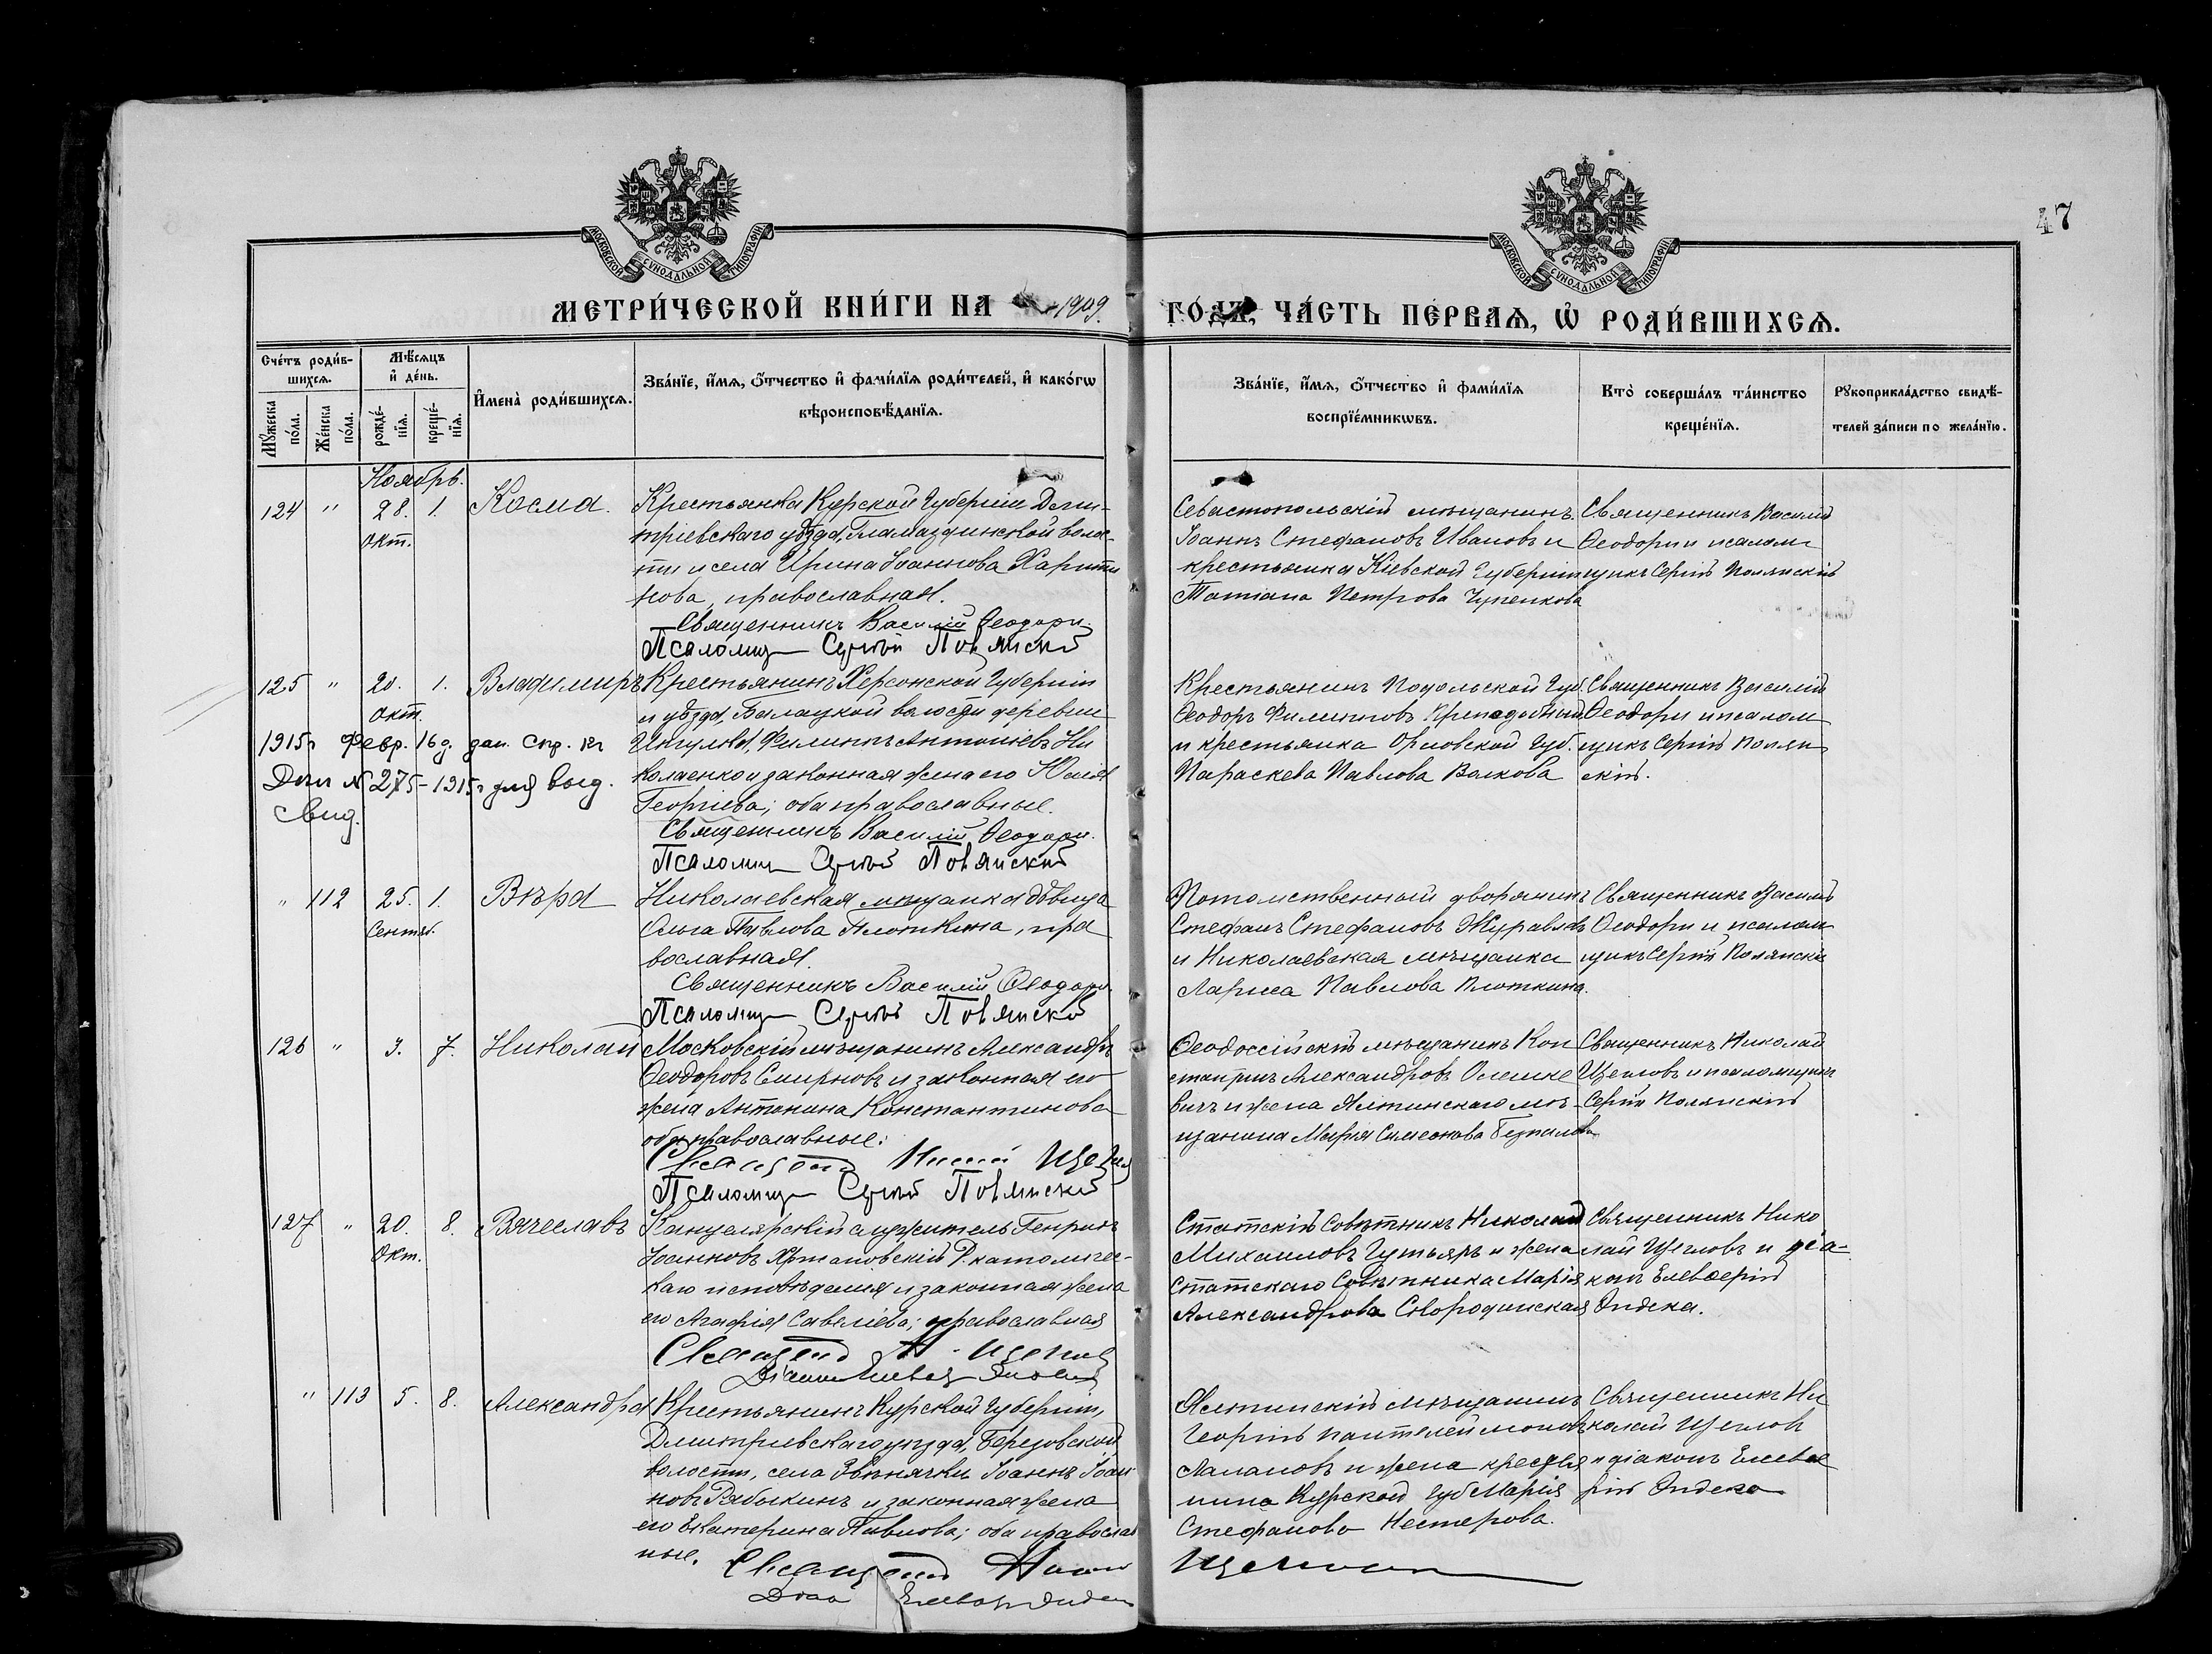 47
МОСКОВСКОЙ СѴНОДАЛЬНОЙ ТИПОГРАФІИ
МОСКОВСКОЙ СѴНОДАЛЬНОЙ ТИПОГРАФІИ
МЕТРИ́ЧЕСКОЙ КНИ́ГИ НА 1909. ГО́ДЪ, ЧА́СТЬ ПЕ́РВАѦ, Ѡ҆ РОДИ́ВШИХСѦ.
Сче́тъ роди́в-
шихсѧ.
Мѣ́сѧцъ
и҆ де́нь.
Мꙋ́жеска по́ла.
Же́нска по́ла.
рожде́-
нїѧ.
креще́-
нїѧ.
И҆мена̀ роди́вшихсѧ.
Зва́нїе, и҆́мѧ, ѻ҆́тчество и҆ фами́лїѧ роди́телей, и҆ како́гѡ
вѣроисповѣ́данїѧ.
Зва́нїе, и҆́мѧ, ѻ҆́тчество и҆ фами́лїѧ
воспрїе́мникѡвъ.
Кто̀ соверша́лъ та́инство
креще́нїѧ.
Рꙋкоприкла́дство свидѣ́-
телей за́писи по жела́нїю.
Ноябрь.
124 " 28. 1. Косма.
Окт.
Крестьянка Курской Губерніи Дми-
тріевскаго уѣзда, волос-
ти и села Ирина Іоаннова Харито
нова, православная.
Священникъ Василій Ѳеодори.
Псаломщ Сергій Полянскій
Севастопольскій мѣщанинъ
Іоаннъ Стефановъ Ивановъ и
крестьянка Кіевской Губерніи
Татіана Петрова Чупенкова
Священникъ Василій
Ѳеодори и псалом
щикъ Сергій Полянскій
125 " 20. 1. Владимиръ
Окт.
1915 г. Февр. 16 д. дан. спр. къ
Дѣлу № 275-1915 г. для выд.
свид.
Крестьянинъ Херсонской Губерніи
и уѣзда, Балацкой волости деревни
Ингулка, Филиппъ Антоніевъ Ни
колаенко и законная жена его Юлія
Георгіева; оба православные.
Священникъ Василій Ѳеодори.
Псаломщ Сергій Полянскій
Крестьянинъ Подольской Губ.
Ѳеодоръ Филипповъ
и крестьянка Орловской Губ.
Параскева Павлова Волкова
Священникъ Василій
Ѳеодори и псалом
щикъ Сергій Полян
скій.
" 112 25. 1. Вѣра
Сентяб.
Николаевская мѣщанка дѣвица
Ольга Павлова Плоткина, пра
вославная.
Священникъ Василій Ѳеодори
Псаломщ Сергій Полянскій
Потомственный дворянинъ
Стефанъ Стефановъ Журавлевъ
и Николаевская мѣщанка
Лариса Павлова Плоткина.
Священникъ Василій
Ѳеодори и псалом
щикъ Сергій Полянскій
126 " 3. 7. Николай
Московскій мѣщанинъ Александръ
Ѳеодоровъ Смирновъ и законная его
жена Антонина Константинова
оба православные.
Священникъ Николай Щегловъ
Псаломщ Сергій Полянскій
Ѳеодоссійскій мѣщанинъ Кон
стантинъ Александровъ Олешке
вичъ и жена Ялтинскаго мѣ-
щанина Марія Симеонова
Священникъ Николай
Щегловъ и псаломщикъ
Сергій Полянскій
127 " 20. 8. Вячеславъ
Окт.
Канцелярскій служитель Генрихъ
Іоанновъ Р. католичес-
каго исповѣданія и законная жена
его Агафія Савеліева; православная
Священникъ Н. Щегловъ
Діаконъ
Статскій Совѣтникъ Николай
Михаиловъ Гутьяръ и жена
Статскаго Совѣтника Марія
Александрова Сковородинская
Священникъ Нико
лай Щегловъ и діа-
конъ Елевѳерій
Эндека.
" 113 5. 8. Александра
Крестьянинъ Курской Губерніи,
Дмитріевскаго уѣзда, Березовской
волости, села Звѣнячки Іоаннъ Іоан
новъ Рябыкинъ и законная жена
его Екатерина Павлова; оба православ
ные.
Священникъ Щегловъ
Діак Елевѳер Эндека
Ялтинскій мѣщанинъ
Георгій Пантелеймоновъ
Лалаловъ и жена крестья
нина Курской Губ Марія
Стефанова Нестерова.
Священникъ Ни
колай Щегловъ
и діаконъ Елевѳе
рій Эндека